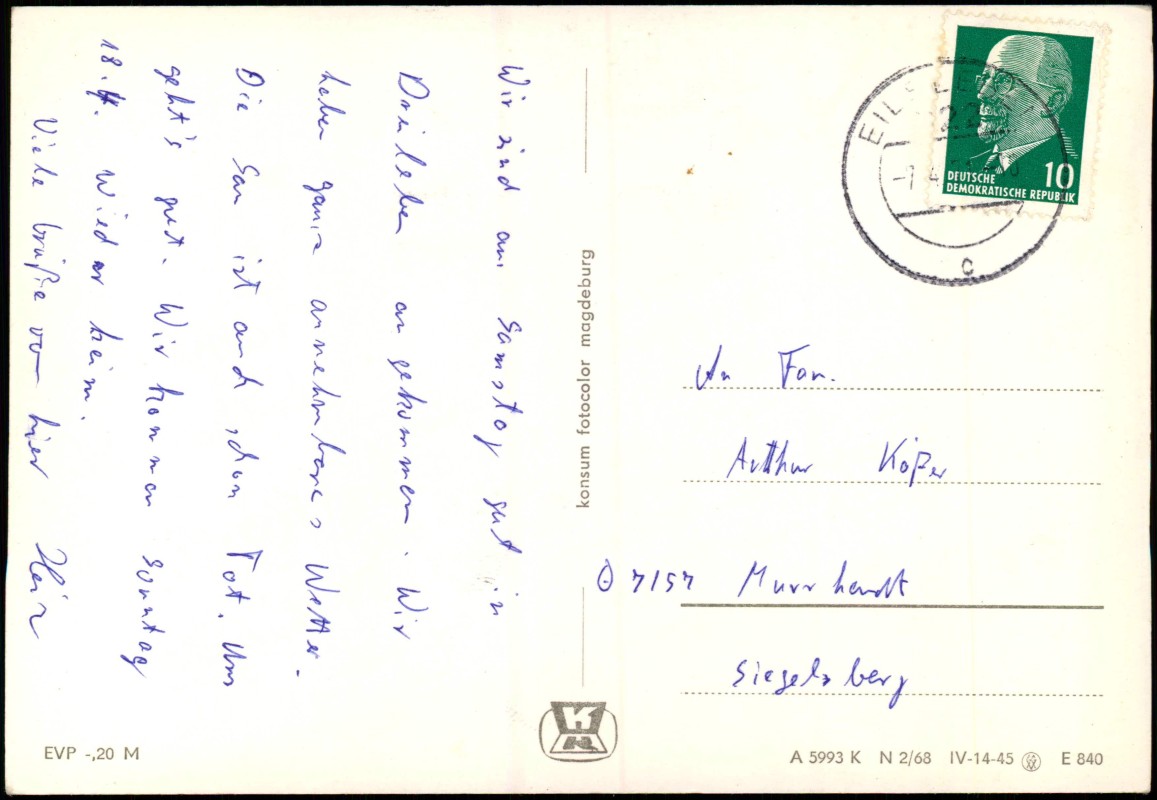 Wir sind am Samstag gut in
Dreileben angekommen. Wir
haben ganz annehmbares Wetter.
Die Sau ist auch schon Tot. Uns
geht's gut. Wir kommen Sonntag
18.4. wieder heim.
Viele Grüße von hier
konsum fotocolor magdeburg
DEUTSCHE
DEMOKRATISCHE REPUBLIK
10
C
An Fam.
Arthur
7157 Murrhardt
Siegelsberg
EVP -,20 M
A 5993 K N 2/68 IV-14-45 E 840